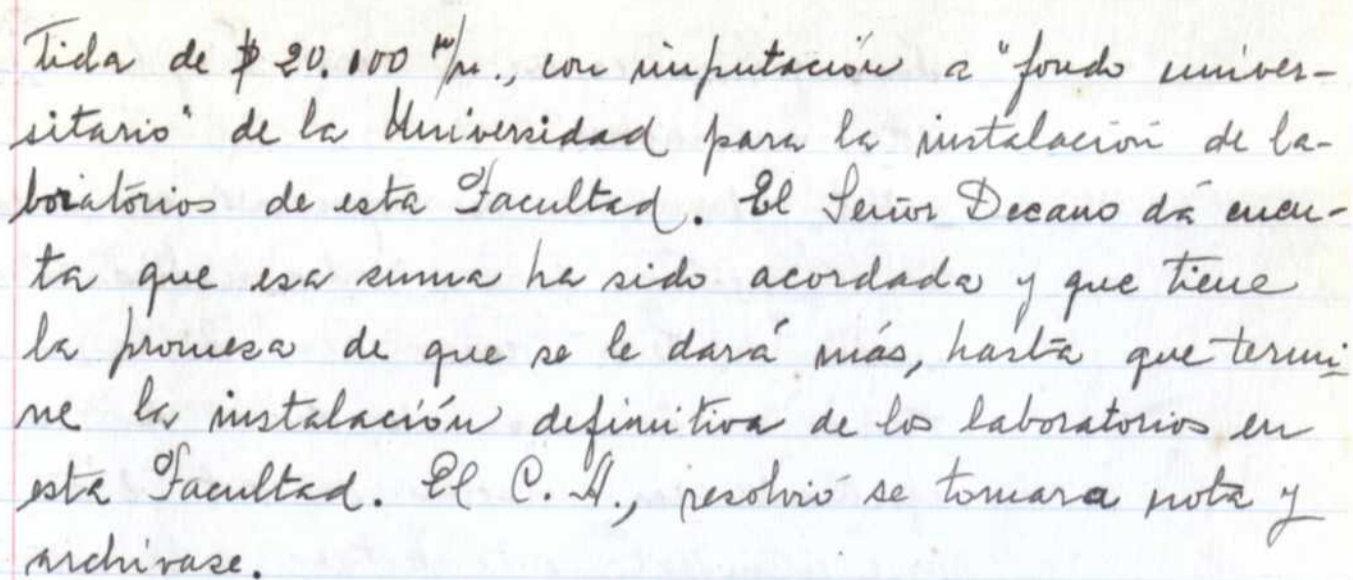 tida de $ 20.000 m/n., con imputación a "fondo univer-
sitario" de la Universidad para la instalación de la-
boratorios de esta Facultad. El Señor Decano dá cuen-
ta que esa suma ha sido acordada y que tiene
la promesa de que se le dará más, hasta que termi-
ne la instalación definitiva de los laboratorios en
esta Facultad. El C. A., resolvió se tomara nota y
archivase.